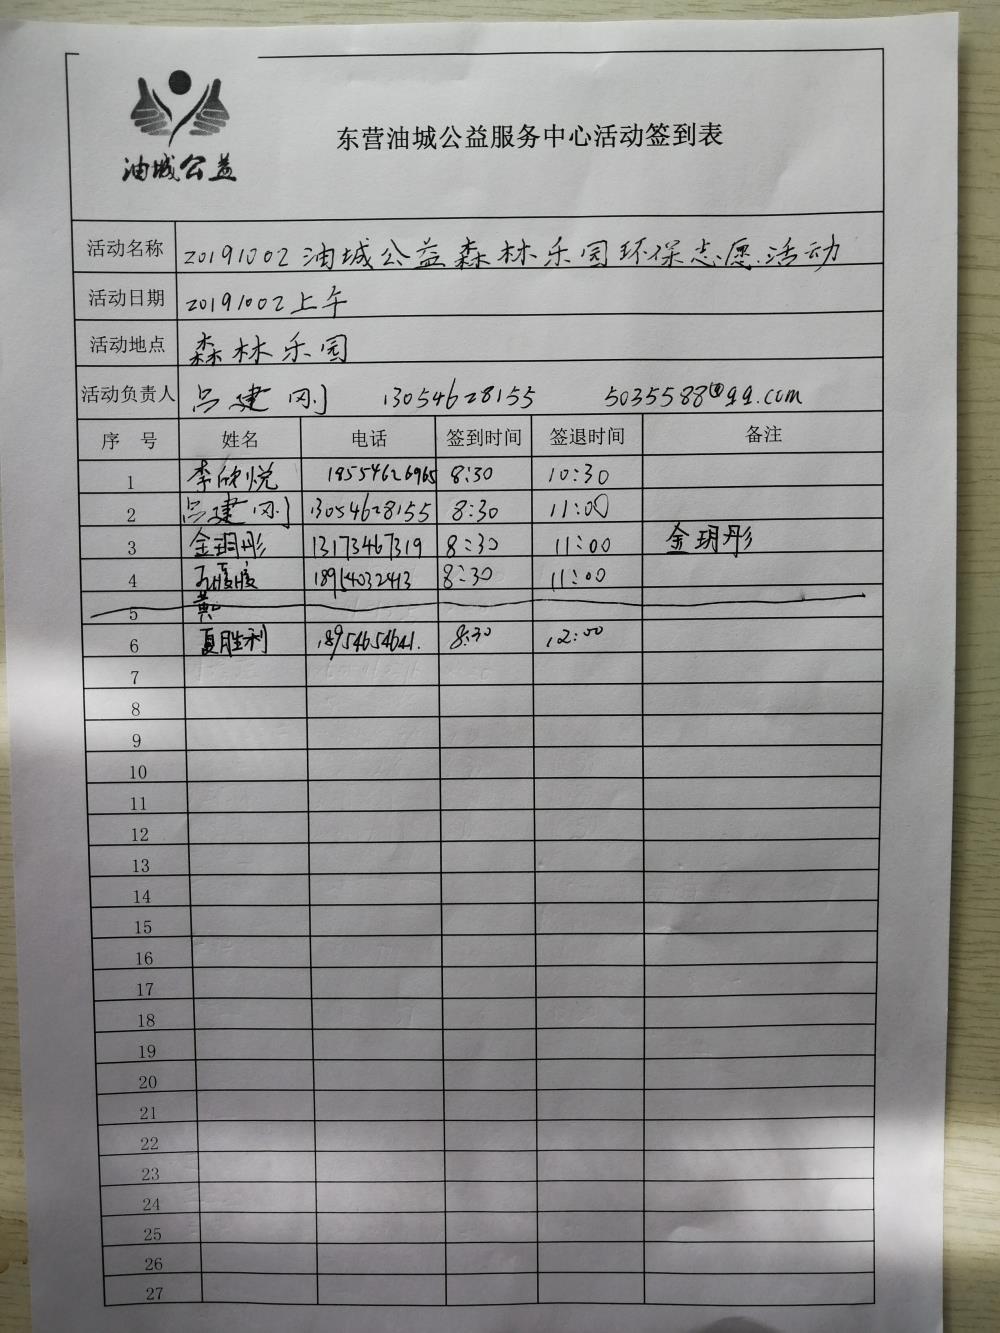 油城公益
东营油城公益服务中心活动签到表
活动名称 20191002油城公益森林乐园环保志愿活动
活动日期 20191002上午
活动地点 森林乐园
活动负责人 吕建刚 13054628155 5035588@qq.com
序 号 姓名 电话 签到时间 签退时间 备注
1 李欣悦 18554626965 8:30 10:30
2 吕建刚 13054628155 8:30 11:00
3 金玥彤 13173467319 8:30 11:00 金玥彤
4 18954032413 8:30 11:00
5 黄
6 夏胜利 18954654641. 8:30 12:00
7
8
9
10
11
12
13
14
15
16
17
18
19
20
21
22
23
24
25
26
27